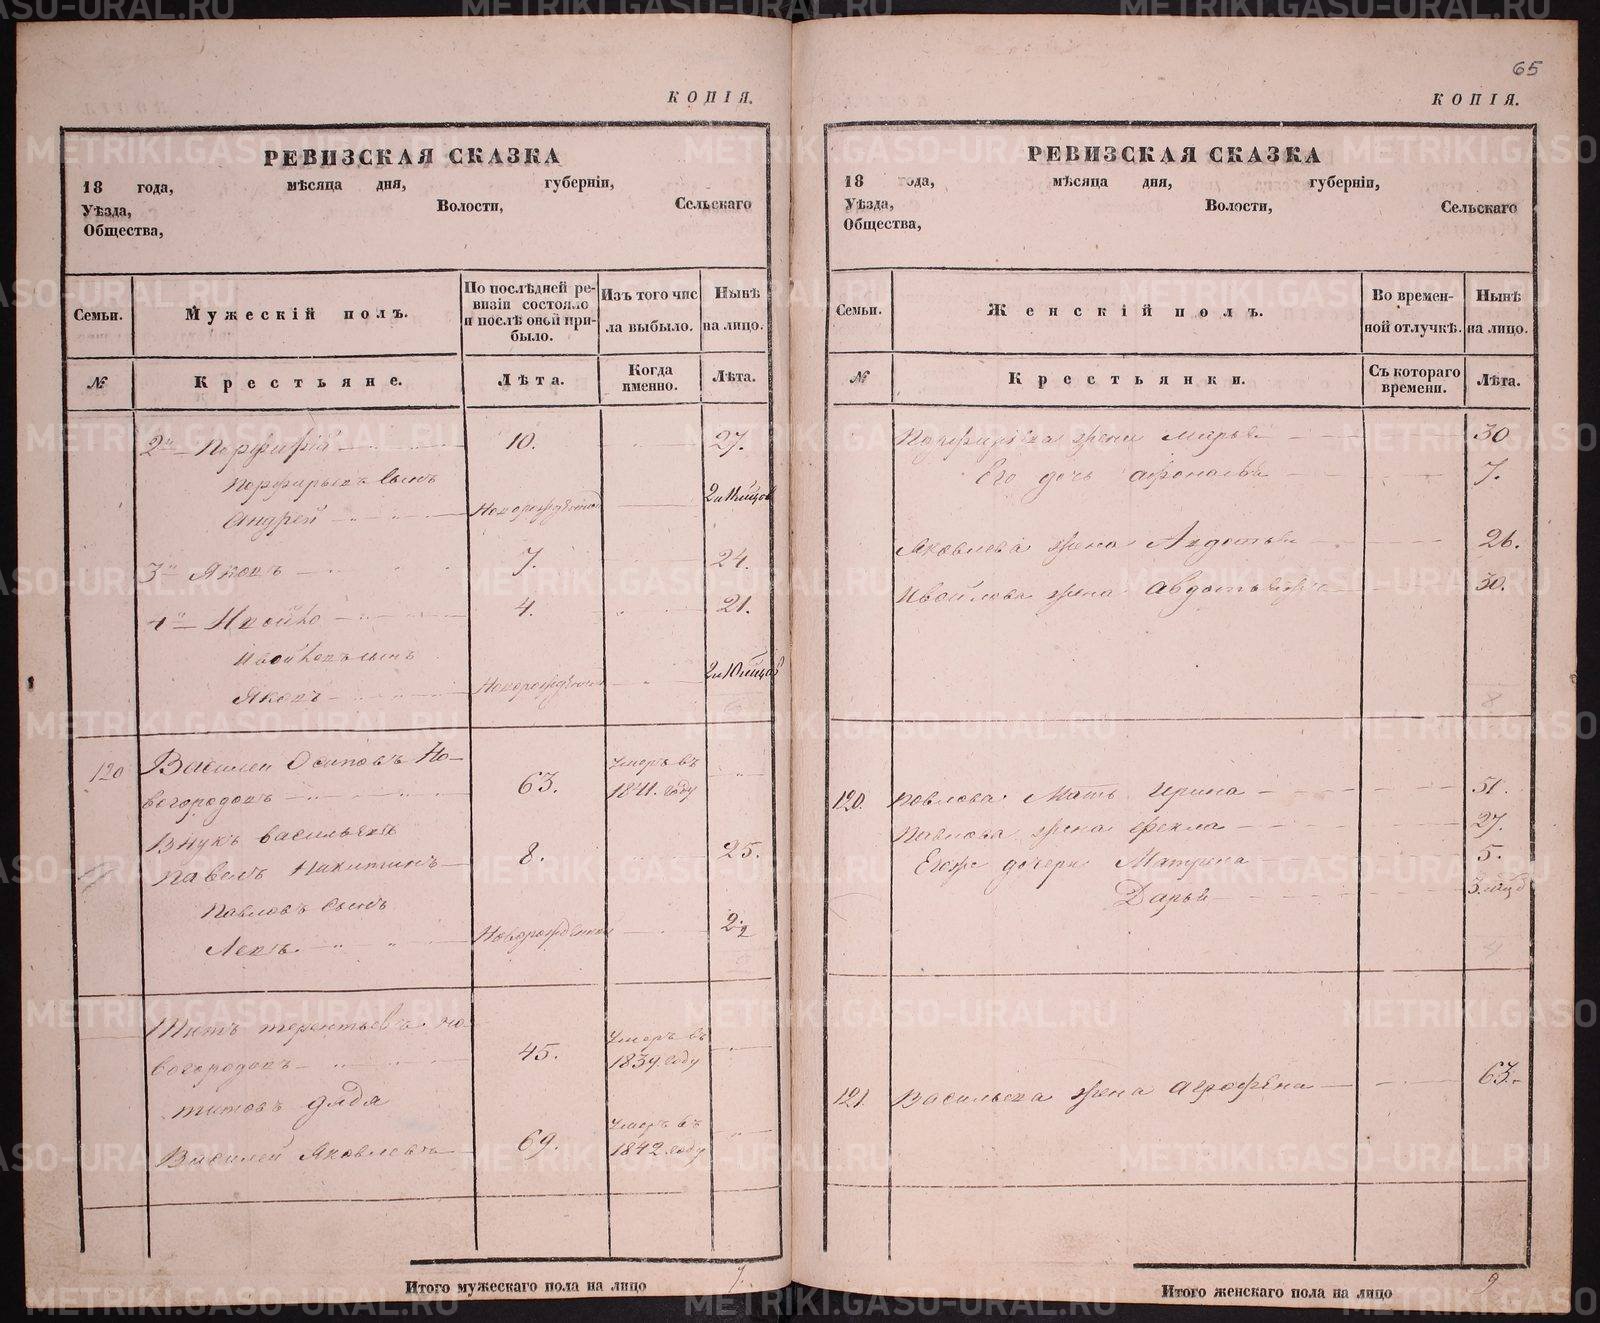 65
КОПІЯ.
РЕВИЗСКАЯ СКАЗКА
18 года, мѣсяца дня, губерніи,
Уѣзда, Волости, Сельскаго
Общества,
Семьи.
Мужескій полъ.
По послѣдней ре-
визіи состояло
и послѣ оной при-
было.
Изъ того чис
ла выбыло.
Нынѣ
на лицо.
№
Крестьяне.
Лѣта.
Когда
именно.
Лѣта.
2й Порфирій 10. 27.
Порфирьевъ сынъ
Андрей Новорожденной
3й Яковъ 7. 24.
4й Ивойко 4. 21.
Ивойковъ сынъ
Яковъ Новорожденной
120 Василей Осиповъ Но-
вогородовъ 63. Умеръ въ
1841. году
Внукъ Васильевъ
Павелъ Никитинъ 8. 25.
Павловъ сынъ
Левъ Новорожденной
Титъ Терентьевъ Но
вогородовъ 45. Умеръ въ
1839. году
Титовъ дядя
Василей Яковлевъ 69. Умеръ въ
1842. году
Итого мужескаго пола на лицо 7.
КОПІЯ.
РЕВИЗСКАЯ СКАЗКА
18 года, мѣсяца дня, губерніи,
Уѣзда, Волости, Сельскаго
Общества,
Семьи.
Женскій полъ.
Во времен-
ной отлучкѣ.
Нынѣ
на лицо.
№
Крестьянки.
Съ котораго
времени.
Лѣта.
Порфирьева жена Марья 30
Его дочь 7.
Яковлева жена Авдотья 26.
Ивойлова жена Авдотья 30.
8
120. Павлова Мать Ирина 51.
Павлова жена Фекла 27.
Его дочери Матрена 5.
Дарья 3. мѣц
4
121. Васильева жена Агрофена 63.
Итого женскаго пола на лицо 9
METRIKI.GASO-URAL.RU